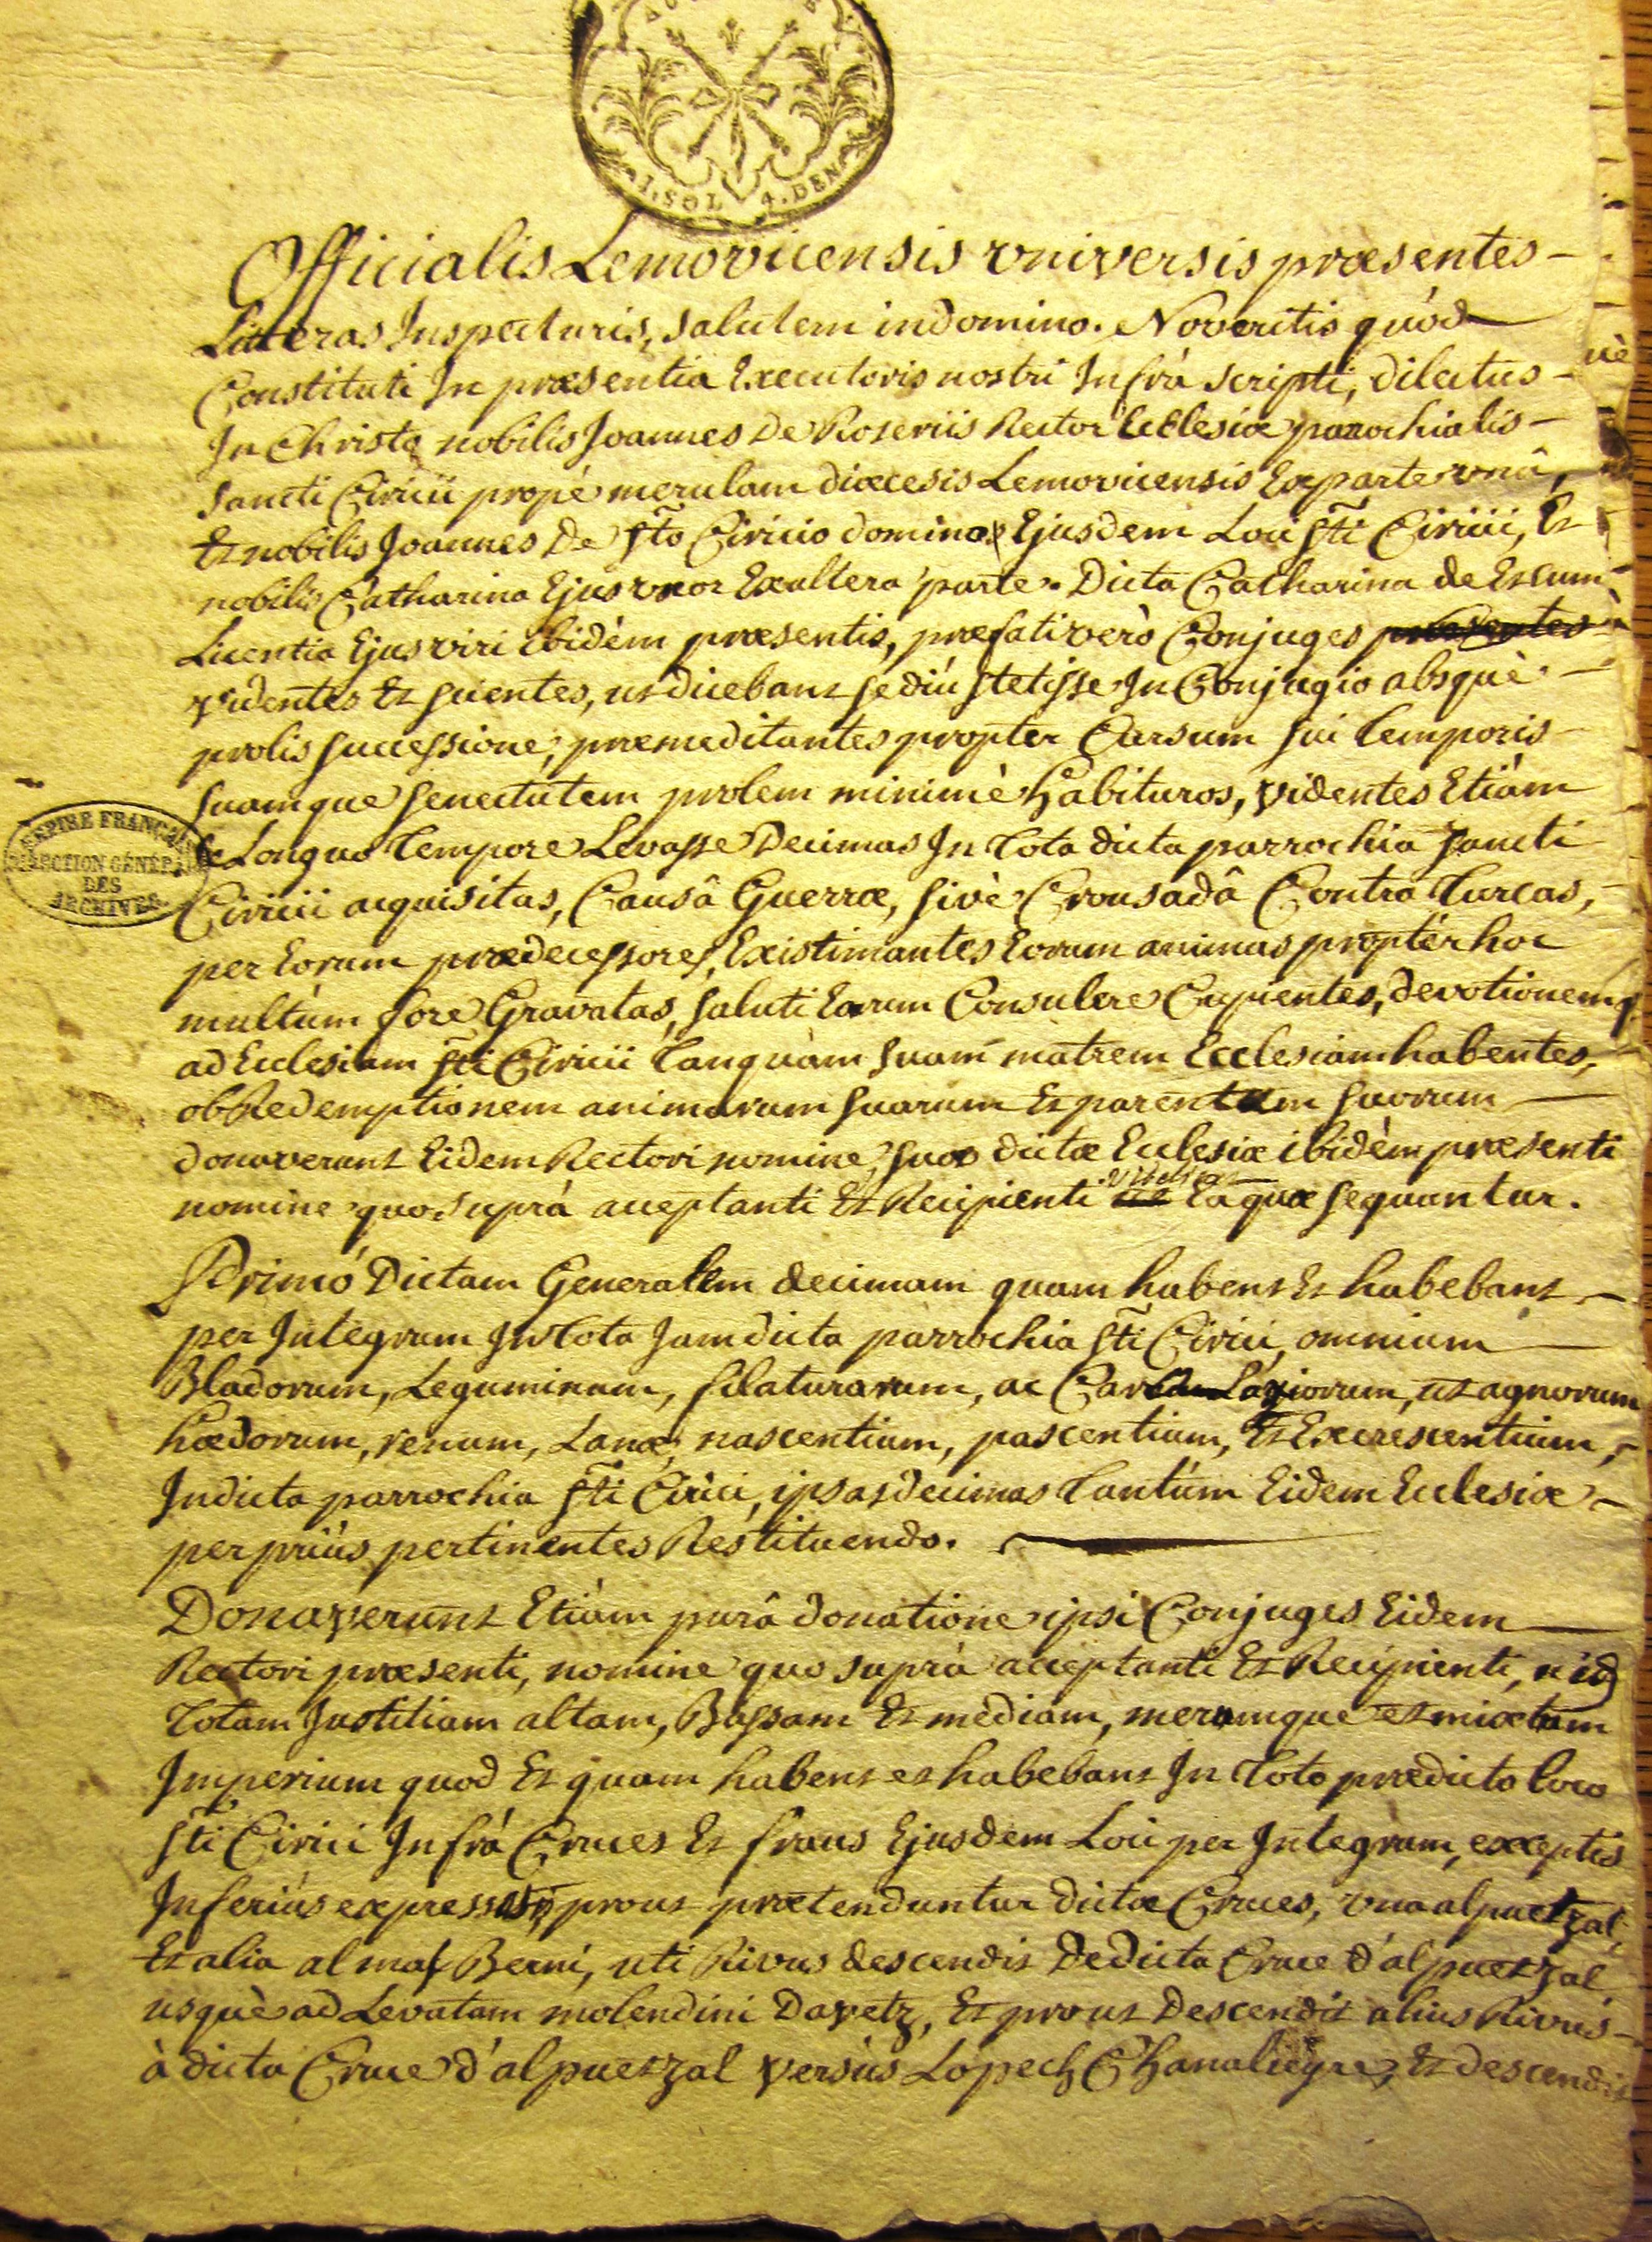 I. SOL 4. DEN
Officialis Lemovicensis vniversis præsentes
Litteras Inspecturis, salutem in domino. Noveritis quòd
Constituti In præsentia Executoris nostri Infrà scripti, dilectus
In Christo nobilis Joannes De Roseriis Rector Ecclesiæ parrochialis
Sancti Ciricii propè merulam diœcesis Lemovicensis Ex parte vnâ,
Et nobilis Joannes De Sto Ciricio dominus Ejusdem Loci Sti Ciricii, Et
nobilis Catharina Ejus vxor Ex altera parte. Dicta Catharina de Et cum
Licentia Ejus viri Ibidèm præsentis, præfati verò Conjuges præsentes
videntes Et scientes, ut dicebant se diù stetisse In Conjugio absquè
prolis successione, præmeditantes propter Cursum sui Temporis
suamque senectutem prolem minimè habituros, videntes Etiàm
se Longuo Tempore Levasse Decimas In Tota dicta parrochia Sancti
Ciricii acquisitas, Causâ Guerræ, sivè Crousadâ Contra Turcas,
per Eorum prædecessores, Existimantes Eorum animas propter hoc
multùm fore Gravatas, saluti Earum Consulere Cupientes, devotionemq.
ad Ecclesiam Sti Ciricii Tanquàm suam matrem Ecclesiam habentes,
ob Redemptionem animarum suarum Et parentum suorum
donaverunt Eidem Rectori nomine suæ dictæ Ecclesiæ ibidèm præsenti
nomine quo suprà acceptanti Et Recipienti videlicet Ea quæ sequuntur.
Primò Dictam Generalem decimam quam habent Et habebant
per Integrum In Tota Jam dicta parrochia Sti Cirici, omnium
Bladorum, Leguminum, filaturarum, ac agnorum
hædorum, renum, Lanæ, nascentium, pascentium, Et Excrescentium,
In dicta parrochia Sti Cirici, ipsas decimas Tantùm Eidem Ecclesiæ
per priùs pertinentes Restituendo.
Donaverunt Etiàm purâ donatione ipsi Conjuges Eidem
Rectori præsenti, nomine quo suprà acceptanti Et Recipienti,
Totam Justitiam altam, Bassam Et mediam, merumque et mixtum
Imperium quod Et quam habent et habebant In Toto prædicto loco
Sti Cirici Infrà Cruces Et francs Ejusdem Loci per Integrum, exceptis
Inferiùs expressis prout prætenduntur dictæ Cruces, vna al puetzal,
Et alia al mas Berni, uti Rivus descendit De dicta Cruce d'al puetzal
usquè ad Levatam molendini Davetz, Et prout Descendit alius Rivus
à dicta Cruce d'al puetzal versùs Lopech Chanaliegre, Et descendit
EMPIRE FRANÇAIS
DIRECTION GÉNÉRALE
DES
ARCHIVES